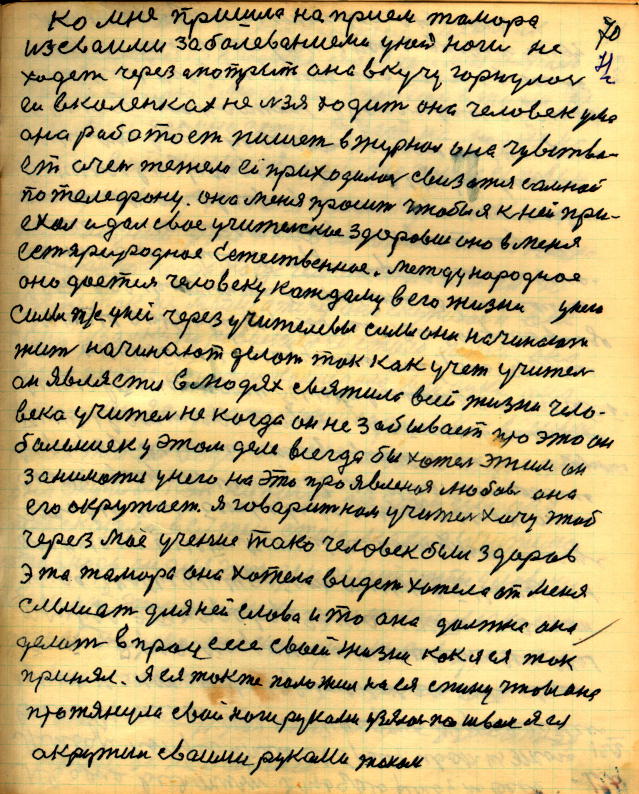 Ко мне пришла на прием тамора
из сваими заболеваниеми у ней ноги не
ходят через она в кучу горнулос
ей в коленках не лзя ходит она человек ума
она работоет пишет в журнал она чувства-
ет очен тежело ей приходилос свизатся самной
по телефону. она меня просит чтобы я к ней при-
ехал и дал свое учителское здоровие оно в меня
есть природное Естественное. Международное
оно дается человеку каждому в его жизни у него
силы у ней через учителевы силы они начинают
жит начинают делот ток как учет учител
он являсти в людях святила всей жизни чело-
века учител не когда он не забывает про это он
балшиек у этом деле всегда бы хотел этим он
заниматся у него на это проявленоя любов она
его окружает. Я говарит нам учител хочу чтоб
через мое учение тако человек был здаров
Эта тамора она хотела видет хотела от меня
слышат для ней слова и то она должна она
делат в процессе своей жизни как я ея ток
принял. Я ея токже положил на ея спину чтобы она
протянула свои ноги руками узялас по швам я ея
акружил сваими руками токам